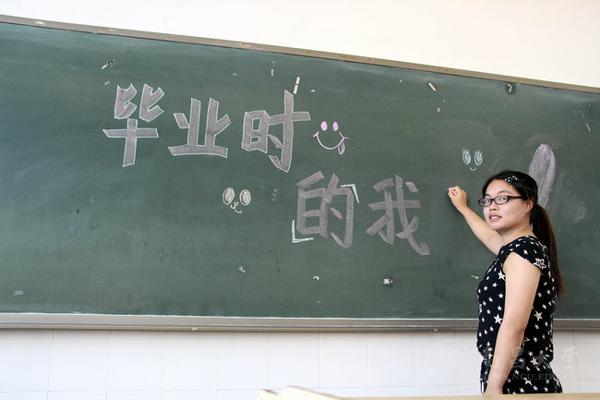 毕业时
的我